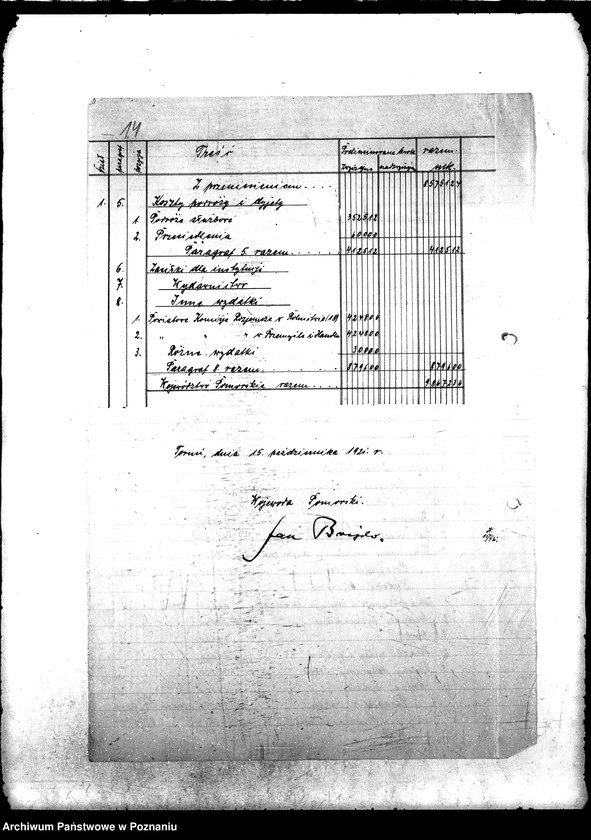 14
Dział paragraf pozycja Treść Preliminowana kwota razem
zwyczajna nadzwyczaj. mk.
Z przeniesieniem . . . . 8575124
1. 5. Koszty podróży i dyjety
1 Podróże służbowe 352512
2. Przesiedlenia 60000
Paragraf 5. razem . . . . 412512 412512
6. Zasiłki dla instytucji
7. Wydawnictwo
8. Inne wydatki
1. Powiatowe Komisje Rozjemcze w Rolnictwie 424800
2. " " " w Przemyśle i Handlu 424800
3. Różne wydatki 30000
Paragraf 8. razem . . . . 879600 879600
Województwo Pomorskie razem . . . . 9867236
Toruń, dnia 15. października 1921. r.
Wojewoda Pomorski.
Jan Brejski.
Archiwum Państwowe w Poznaniu